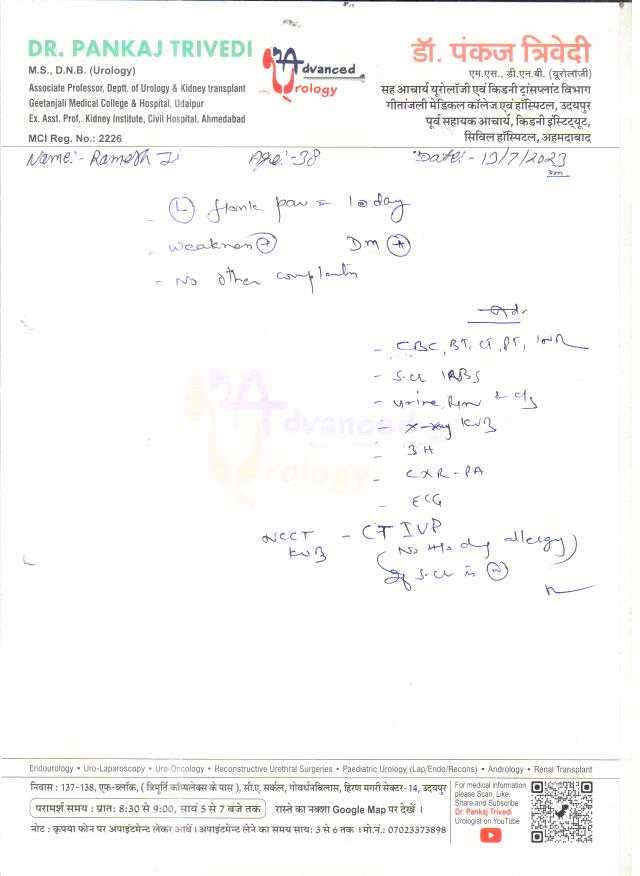 DR. PANKAJ TRIVEDI
M.S., D.N.B. (Urology)
Associate Professor, Deptt. of Urology & Kidney transplant
Geetanjali Medical College & Hospital, Udaipur
Ex. Asst. Prof,. Kidney Institute, Civil Hospital, Ahmedabad
MCI Reg. No.: 2226
Advanced
Urology
डॉ. पंकज त्रिवेदी
एम.एस., डी.एन.बी. (यूरोलॉजी)
सह आचार्य यूरोलॉजी एवं किडनी ट्रांसप्लांट विभाग
गीतांजली मेडिकल कॉलेज एवं हॉस्पिटल, उदयपुर
पूर्व सहायक आचार्य, किडनी इंस्टिट्यूट,
सिविल हॉस्पिटल, अहमदाबाद
Name:- Ramesh Ji Age:-38 Date:- 13/7/2023
- (L) flank pain = 10 day
- weakness (+) DM (+)
- No other complaints
Adv.
- CBC, BT, CT, PT, INR
- S.cr, RBS
- Urine R/m & c/s
- X-ray KUB
- 3H
- CXR-PA
- ECG
NCCT KUB - CT IVP
(No H/o dry allergy)
If S.cr is (N)
Advanced
Urology
Endourology • Uro-Laparoscopy • Uro-Oncology • Reconstructive Urethral Surgeries • Paediatric Urology (Lap/Endo/Recons) • Andrology • Renal Transplant
निवास : 137-138, एफ-ब्लॉक, ( त्रिमूर्ति कॉम्पलेक्स के पास ), सी.ए. सर्कल, गोवर्धनविलास, हिरण मगरी सेक्टर-14, उदयपुर
परामर्श समय : प्रातः 8:30 से 9:00, सायं 5 से 7 बजे तक रास्ते का नक्शा Google Map पर देखें ।
नोट : कृपया फोन पर अपाइंटमेन्ट लेकर आवें । अपाइंटमेन्ट लेने का समय सायः 3 से 6 तक । मो.नं.: 07023373898
For medical information
please Scan, Like,
Share and Subscribe
Dr. Pankaj Trivedi
Urologist on YouTube